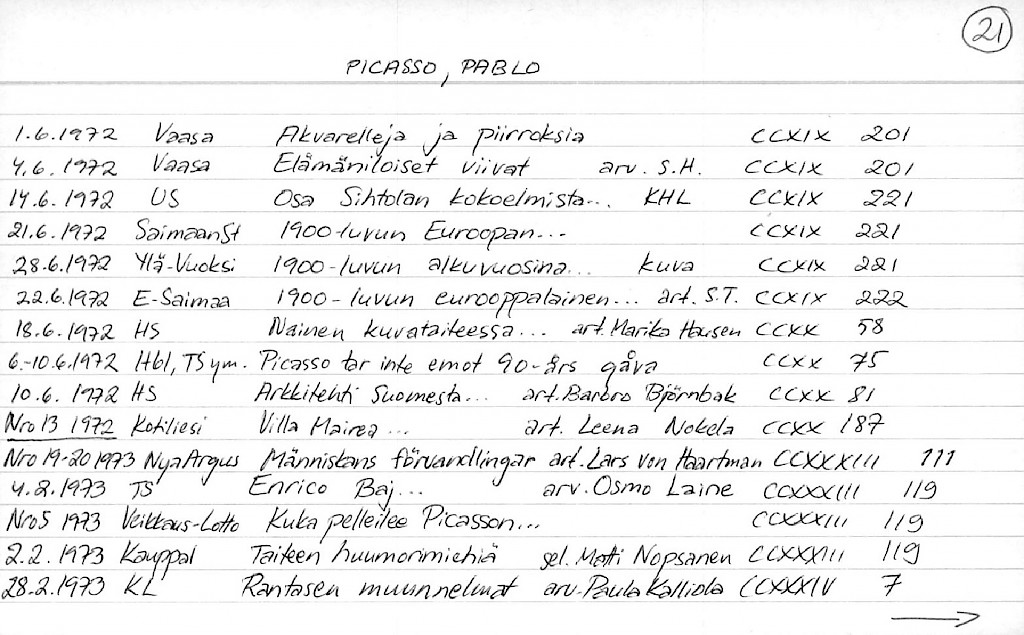 21
PICASSO, PABLO
1.6.1972 Vaasa Akvarelleja ja piirroksia CCXIX 201
4.6.1972 Vaasa Elämäniloiset viivat arv. S.H. CCXIX 201
14.6.1972 US Osa Sihtolan kokoelmista... KHL CCXIX 221
21.6.1972 SaimaanSt 1900-luvun Euroopan... CCXIX 221
28.6.1972 Ylä-Vuoksi 1900-luvun alkuvuosina... kuva CCXIX 221
22.6.1972 E-Saimaa 1900-luvun eurooppalainen... art. S.T. CCXIX 222
18.6.1972 HS Nainen kuvataiteessa... art. Marika Hausen CCXX 58
6.-10.6.1972 Hbl, TS ym. Picasso tar inte emot 90-års gåva CCXX 75
10.6.1972 HS Arkkitehti Suomesta... art. Barbro Björnbak CCXX 81
Nro 13 1972 Kotiliesi Villa Mairea... art. Leena Nokela CCXX 187
Nro 19-20 1973 Nya Argus Människans förvandlingar art. Lars von Haartman CCXXXIII 111
4.2.1973 TS Enrico Baj... arv. Osmo Laine CCXXXIII 119
Nro 5 1973 Veikkaus-Lotto Kuka pelleilee Picasson... CCXXXIII 119
2.2.1973 Kauppal Taiteen huumorimiehiä sel. Matti Nopsanen CCXXXIII 119
28.2.1973 KL Rantasen muunnelmat arv. Paula Kalliola CCXXXIV 7
→